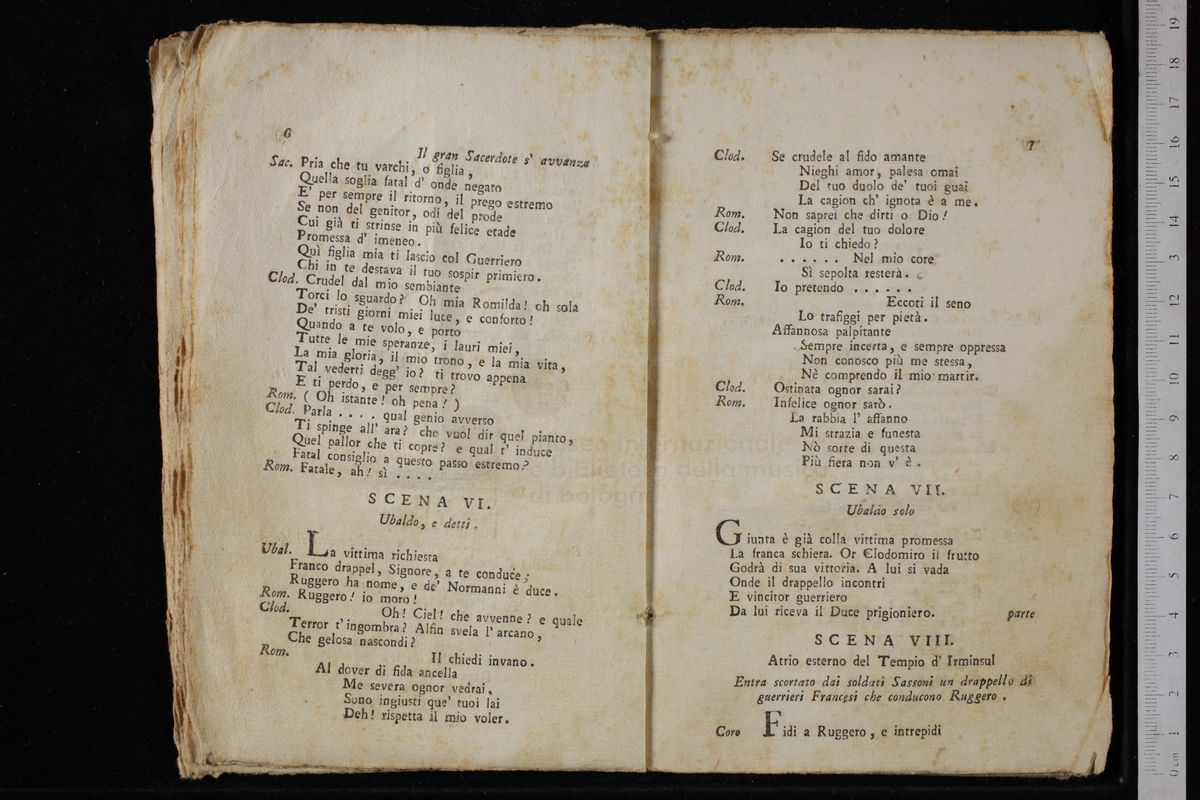 6
Il gran Sacerdote s' avvanza
Sac. Pria che tu varchi, o figlia,
Quella soglia fatal d' onde negato
E' per sempre il ritorno, il prego estremo
Se non del genitor, odi del prode
Cui già ti strinse in più felice etade
Promessa d' imeneo.
Quì figlia mia ti lascio col Guerriero
Chi in te destava il tuo sospir primiero.
Clod. Crudel dal mio sembiante
Torci lo sguardo? Oh mia Romilda! oh sola
De' tristi giorni miei luce, e conforto!
Quando a te volo, e porto
Tutte le mie speranze, i lauri miei,
La mia gloria, il mio trono, e la mia vita,
Tal vederti degg' io? ti trovo appena
E ti perdo, e per sempre?
Rom. ( Oh istante! oh pena! )
Clod. Parla . . . . qual genio avverso
Ti spinge all' ara? che vuol dir quel pianto,
Quel pallor che ti copre? e qual t' induce
Fatal consiglio a questo passo estremo?
Rom. Fatale, ah! sì . . . .
SCENA VI.
Ubaldo, e detti.
Ubal. La vittima richiesta
Franco drappel, Signore, a te conduce;
Ruggero ha nome, e de' Normanni è duce.
Rom. Ruggero! io moro!
Clod. Oh! Ciel! che avvenne? e quale
Terror t' ingombra? Alfin svela l' arcano,
Che gelosa nascondi?
Rom. Il chiedi invano.
Al dover di fida ancella
Me severa ognor vedrai,
Sono ingiusti que' tuoi lai
Deh! rispetta il mio voler.
7
Clod. Se crudele al fido amante
Nieghi amor, palesa omai
Del tuo duolo de' tuoi guai
La cagion ch' ignota è a me.
Rom. Non saprei che dirti o Dio!
Clod. La cagion del tuo dolore
Io ti chiedo?
Rom. . . . . . . Nel mio core
Sì sepolta resterà.
Clod. Io pretendo . . . . . .
Rom. Eccoti il seno
Lo trafiggi per pietà.
Affannosa palpitante
Sempre incerta, e sempre oppressa
Non conosco più me stessa,
Nè comprendo il mio martir.
Clod. Ostinata ognor sarai?
Rom. Infelice ognor sarò.
La rabbia l' affanno
Mi strazia e funesta
Nò sorte di questa
Più fiera non v' è.
SCENA VII.
Ubaldo solo
Giunta è già colla vittima promessa
La franca schiera. Or Clodomiro il frutto
Godrà di sua vittoria. A lui si vada
Onde il drappello incontri
E vincitor guerriero
Da lui riceva il Duce prigioniero. parte
SCENA VIII.
Atrio esterno del Tempio d' Irminsul
Entra scortato dai soldati Sassoni un drappello di
guerrieri Francesi che conducono Ruggero.
Coro Fidi a Ruggero, e intrepidi